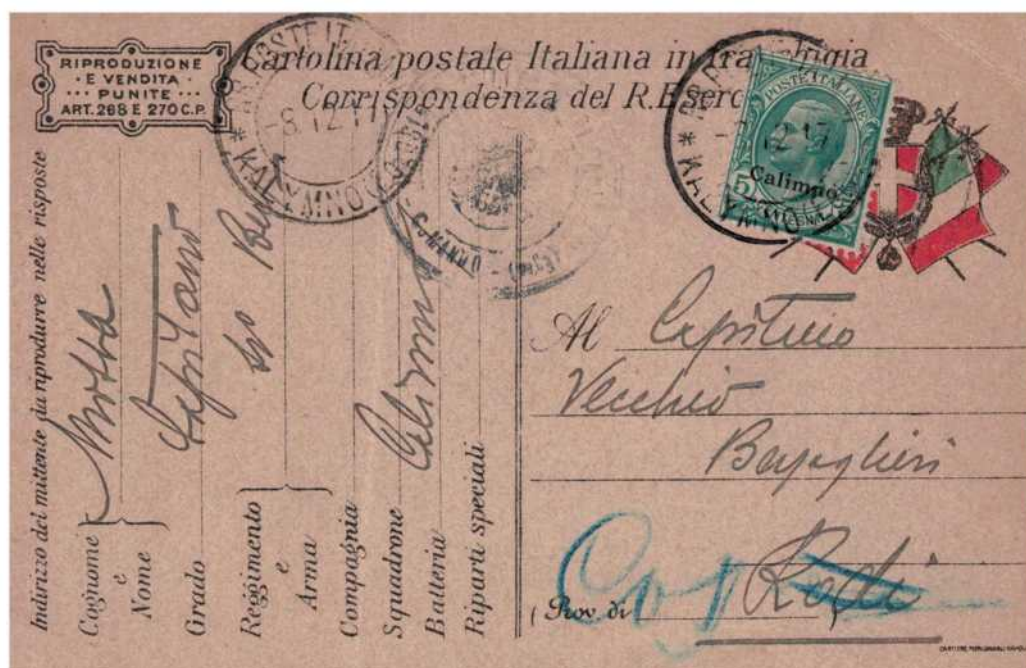 RIPRODUZIONE
· E VENDITA ·
··· PUNITE ···
ART. 268 E 270 C.P.
Cartolina postale Italiana in franchigia
Corrispondenza del R. Eserc
-8.12.17
KALYMNO
POSTE ITALIANE
5
Calimno
KALYMNO
COMANDO
Indirizzo del mittente da riprodurre nelle risposte
Cognome
e
Nome
Motta
Grado
Capitano
Reggimento
e
Arma
Compagnia
Squadrone
Batteria
Calimno
Riparti speciali
Al Capitano
Vecchio
Bersaglieri
(Prov. di Rodi)